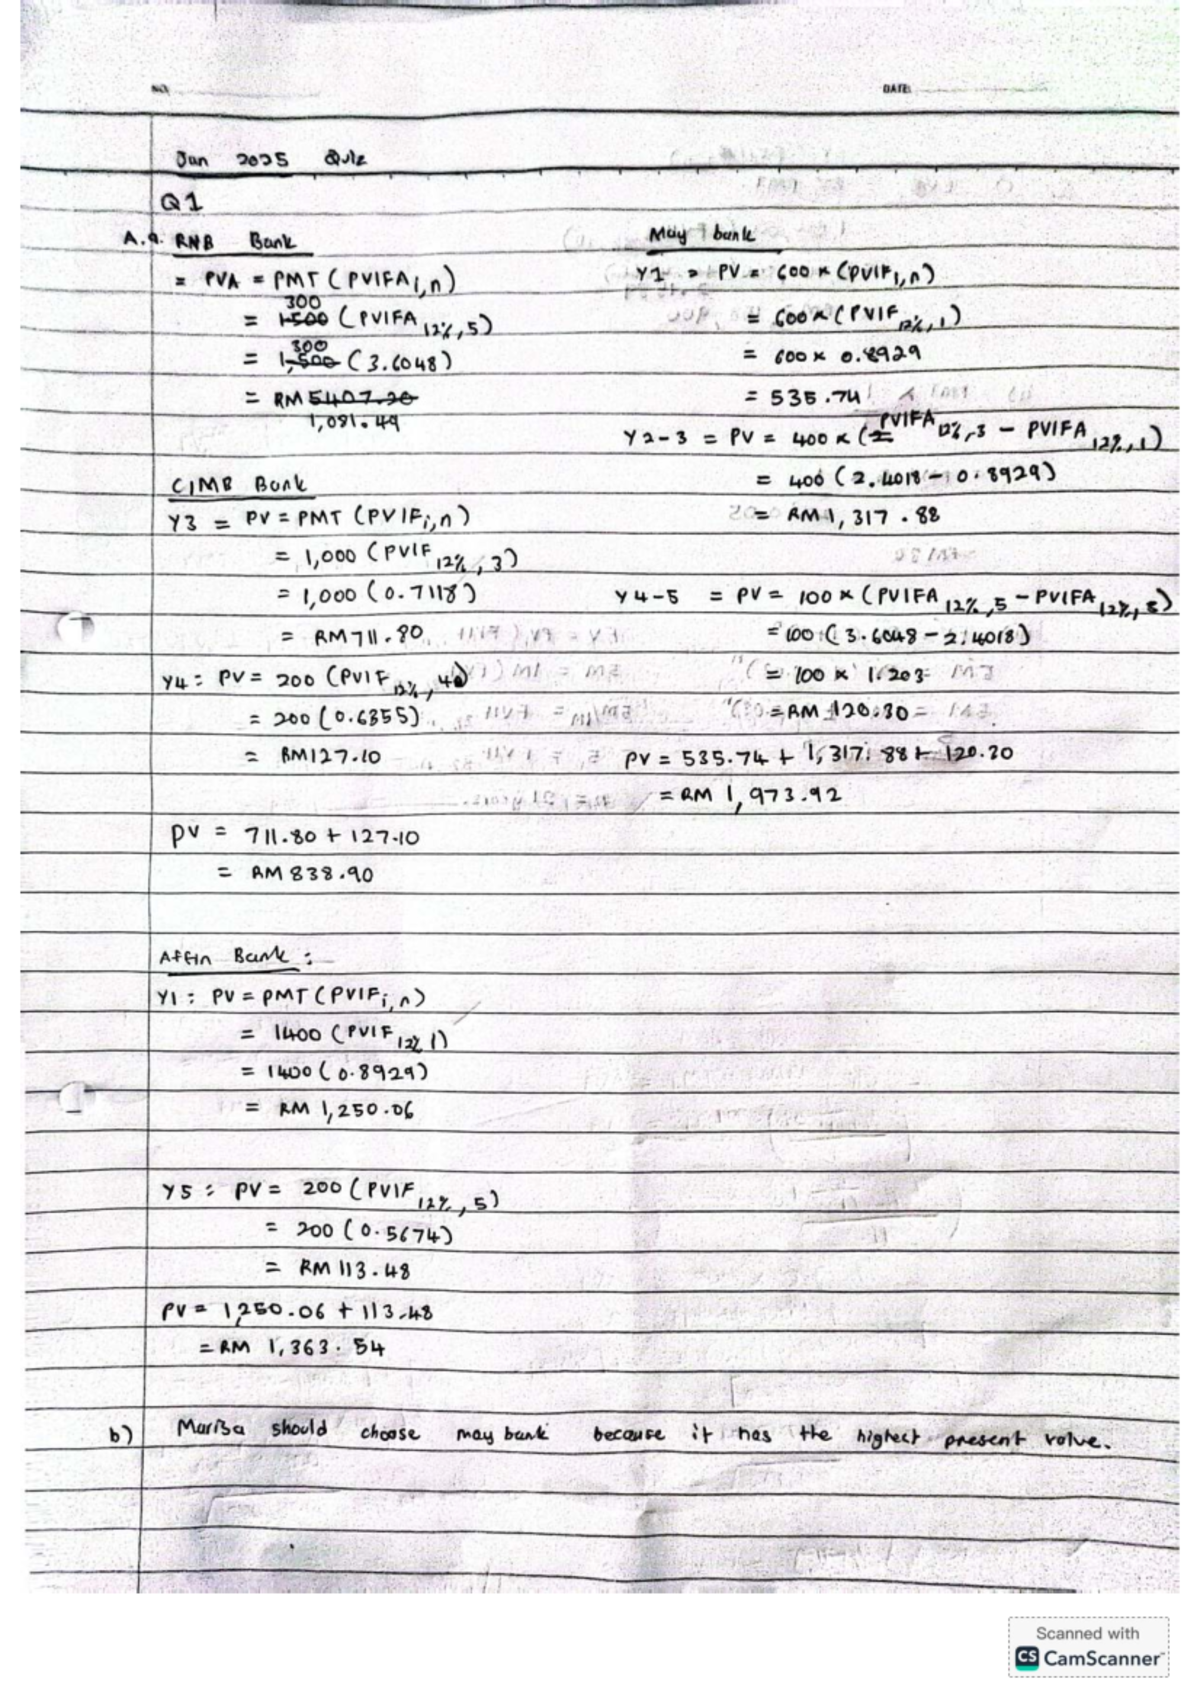 NO.
DATE:
Jan 2025 Quiz
Q1
A.a. RNB Bank
= PVA = PMT (PVIFAi,n)
300
= 1500 (PVIFA 12%, 5)
300
= 1,500 (3.6048)
= RM 5407.20
1,081.44
CIMB Bank
Y3 = PV = PMT (PVIFi,n)
= 1,000 (PVIF 12%, 3)
= 1,000 (0.7118)
= RM 711.80
Y4: PV = 200 (PVIF 12%, 4)
= 200 (0.6355)
= RM127.10
PV = 711.80 + 127.10
= RM 838.90
May bank
Y1 = PV = 600 x (PVIFi,n)
= 600 x (PVIF 12%, 1)
= 600 x 0.8929
= 535.74
Y2-3 = PV = 400 x (PVIFA 12%,3 - PVIFA 12%,1)
= 400 (2.4018 - 0.8929)
= RM 1,317.88
Y4-5 = PV = 100 x (PVIFA 12%,5 - PVIFA 12%,3)
= 100 (3.6048 - 2.4018)
= 100 x 1.203
= RM 120.30
PV = 535.74 + 1,317.88 + 120.30
= RM 1,973.92
Affin Bank:
Y1: PV = PMT (PVIFi,n)
= 1400 (PVIF 12% 1)
= 1400 (0.8929)
= RM 1,250.06
Y5: PV = 200 (PVIF 12%, 5)
= 200 (0.5674)
= RM 113.48
PV = 1,250.06 + 113.48
= RM 1,363.54
b) Marisa should choose may bank because it has the highest present value.
Scanned with
CS CamScanner